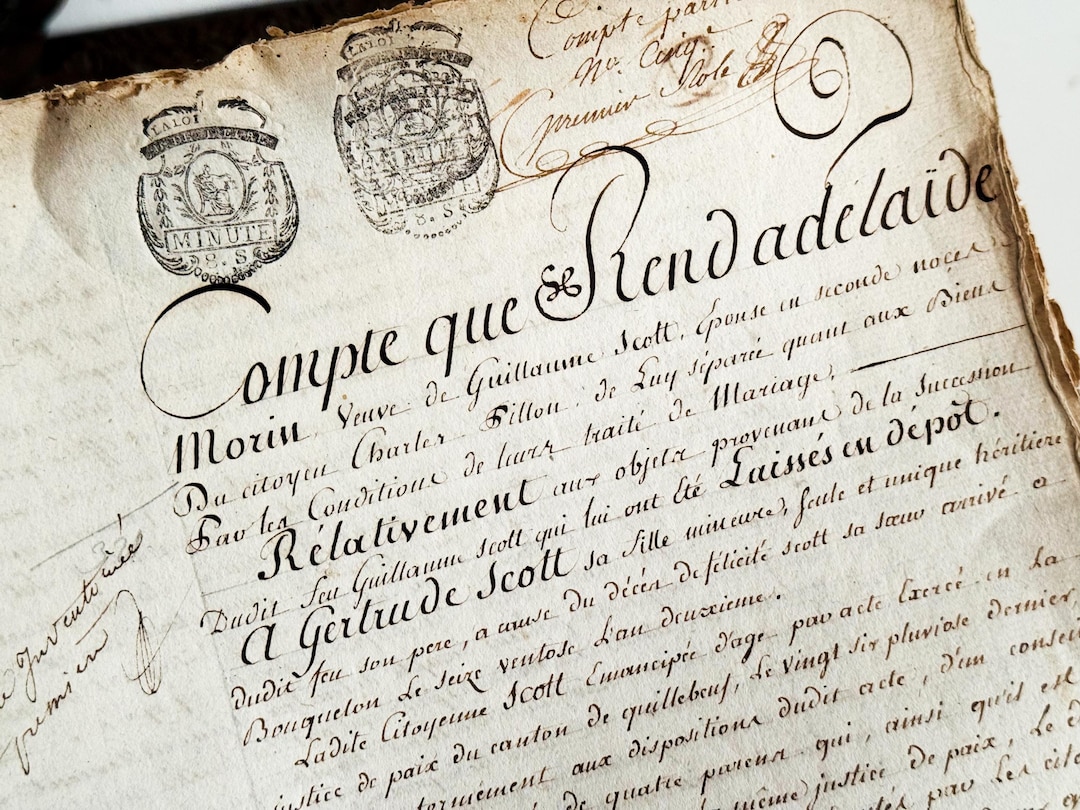 Compte par
No. Cinq.
premier Role
LA LOI
MINUTE
8. S
LA LOI
MINUTE
8. S.
Compte que Rend adélaïde
Morin, Veuve de Guillaume Scott, Epouse en seconde noces
Du citoyen Charles Fillon, de Luy séparée quant aux Biens
Par les Conditions de leurs traité de Mariage.
Rélativement aux objets provenans de la Succession
Dudit feu Guillaume Scott qui lui ont été Laissés en dépôt.
A Gertrude Scott sa fille mineure, seule et unique héritiere
dudit feu son pere, a cause du décès de félicité Scott sa sœur arrivé a
Bouquelon Le Seize ventose L'an deuxieme.
Ladite Citoyenne Scott Emancipée d'age par acte Exercé en La
justice de paix du canton de quillebeuf, Le vingt six pluviose dernier,
aux dispositions dudit acte, d'un conseil
de quatre parens qui, ainsi qu'il est
même justice de paix, Le
par Les cito
Inventoriée
premier